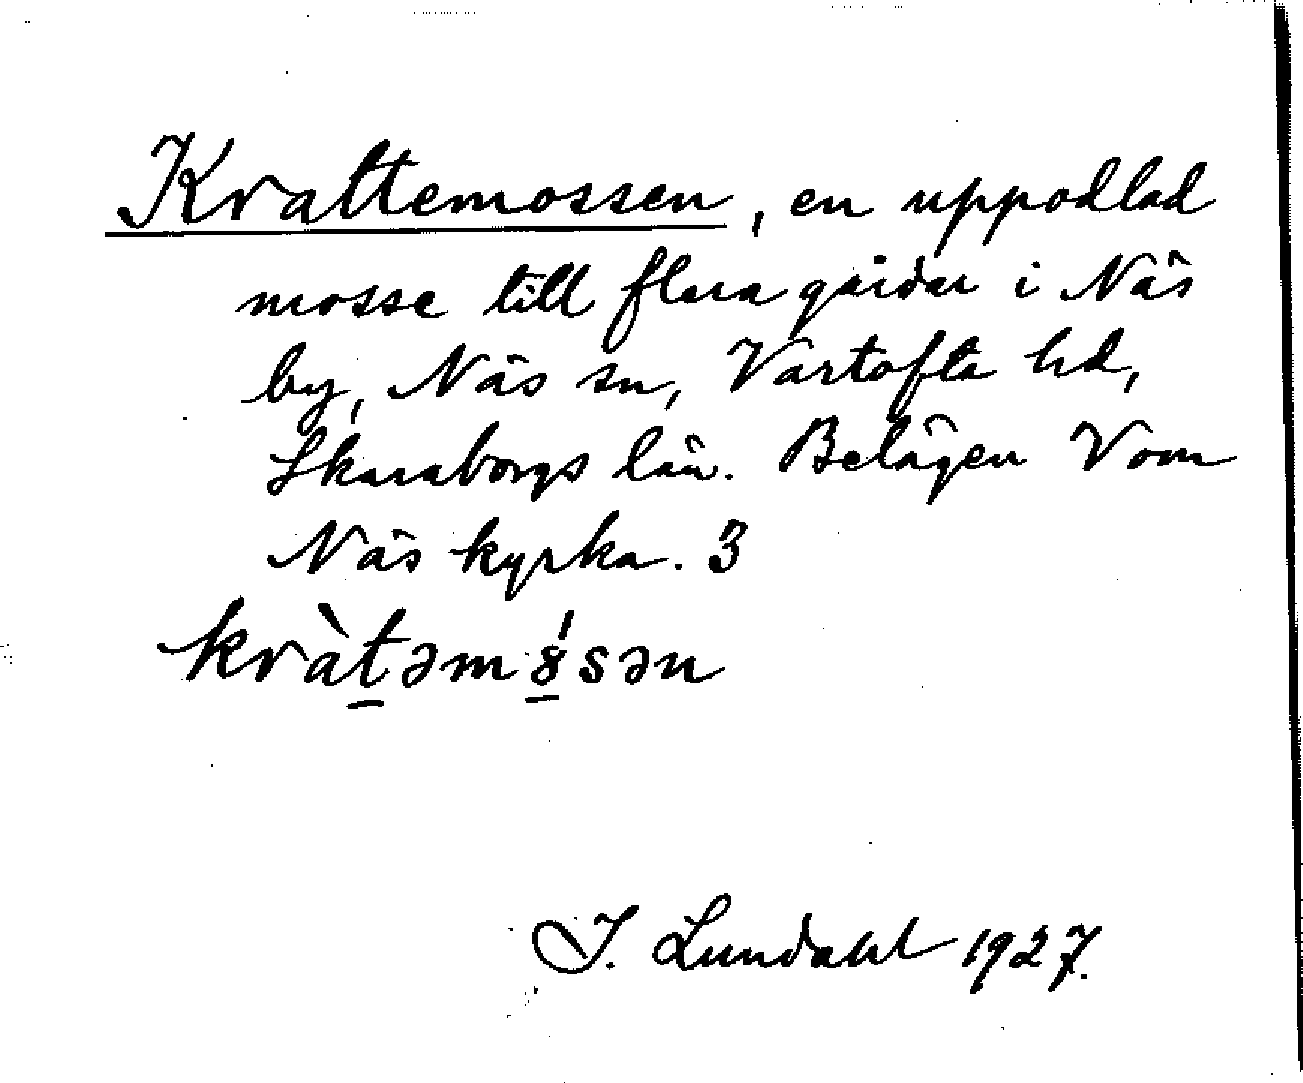 Krattemossen, en uppodlad
mosse till flera gårdar i Näs
by, Näs sn, Vartofta hd,
Skaraborgs län. Belägen V om
Näs kyrka. 3
kràt̠əmȣ̠́sən
I. Lundahl 1927.